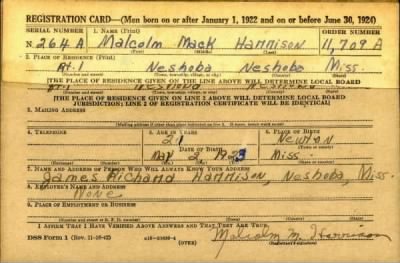 REGISTRATION CARD—(Men born on or after January 1, 1922 and on or before June 30, 1924)
SERIAL NUMBER 1. NAME (Print) ORDER NUMBER
N 264 A Malcolm Mack Harrison 11,709 A
2. PLACE OF RESIDENCE (Print)
Rt. 1 Neshoba Neshoba Miss.
(Number and street) (Town, township, village, or city) (County) (State)
[THE PLACE OF RESIDENCE GIVEN ON THE LINE ABOVE WILL DETERMINE LOCAL BOARD
Rt. 1 Neshoba
[THE PLACE OF RESIDENCE GIVEN ON LINE 2 ABOVE WILL DETERMINE LOCAL BOARD
JURISDICTION; LINE 2 OF REGISTRATION CERTIFICATE WILL BE IDENTICAL]
3. MAILING ADDRESS
[Mailing address if other than place indicated on line 2. If same insert word same]
4. TELEPHONE 5. AGE IN YEARS 6. PLACE OF BIRTH
21 Newton
DATE OF BIRTH (Town or county)
May 2 1923 Miss.
(Exchange) (Number) (Mo.) (Day) (Yr.) (State or country)
7. NAME AND ADDRESS OF PERSON WHO WILL ALWAYS KNOW YOUR ADDRESS
James Richard Harrison Neshoba, Miss.
8. EMPLOYER'S NAME AND ADDRESS
None
9. PLACE OF EMPLOYMENT OR BUSINESS
(Number and street or R. F. D. number) (Town) (County) (State)
I AFFIRM THAT I HAVE VERIFIED ABOVE ANSWERS AND THAT THEY ARE TRUE.
DSS Form 1 (OVER) Malcolm M. Harrison
(Registrant's signature)